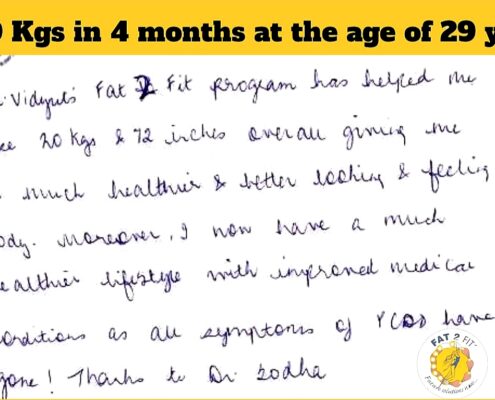 Kgs in 4 months at the age of 29 y
Vidyut's Fat 2 Fit program has helped me
20 Kgs & 72 inches overall giving me
much healthier & better looking & feeling
ody. Moreover, I now have a much
ealthier lifestyle with improved medical
onditions as all symptoms of PCOD have
gone! Thanks to Dr. Sodha
FAT 2 FIT